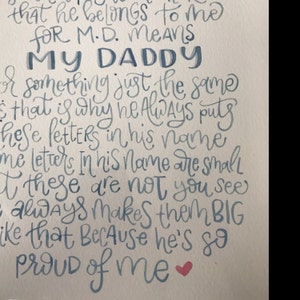 that he belongs to me
for M.D. means
MY DADDY
something just the same
that is why he Always puts
these letters in his name
letters in his name are small
these are not you see
always makes them BIG
like that Because he's so
proud of me